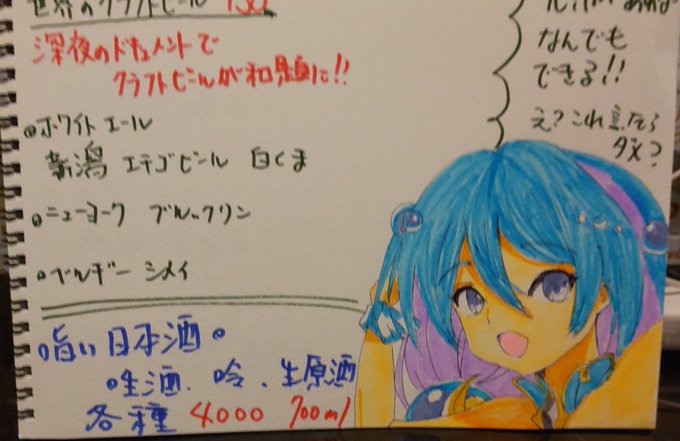 世界のクラフトビール
深夜のドキュメントで
クラフトビールが和題に!!
ホワイトエール
新潟 エチゴビール 白くま
ニューヨーク ブルックリン
ベルギー シメイ
旨い日本酒。
生酒、吟、生原酒
各種 4000 700ml
なんでも
できる!!
え?これ言たら
ダメ?